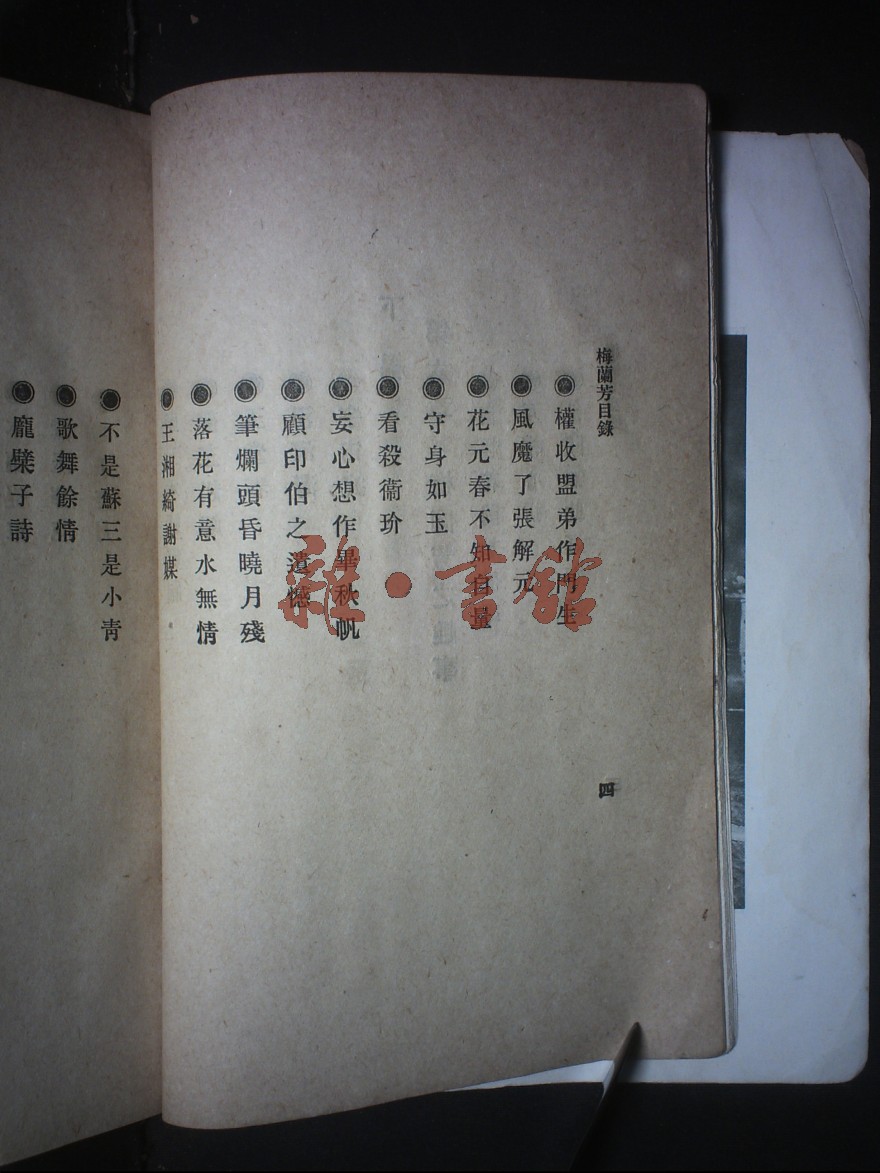 梅蘭芳目錄
四
權收盟弟作門生
風魔了張解元
花元春不知自量
守身如玉
看殺衞玠
妄心想作畢秋帆
顧印伯之遺憾
筆爛頭昏曉月殘
落花有意水無情
王湘綺謝媒
不是蘇三是小青
歌舞餘情
龐檗子詩
雜·書館